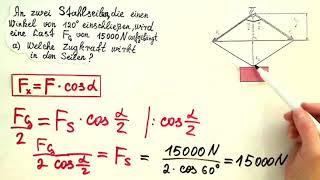 An zwei Stahlseilen, die einen
Winkel von 120° einschließen, wird
eine Last F_G von 15000 N aufgehängt.
a) Welche Zugkraft wirkt
in den Seilen?
F_x = F · cos α
F_G/2 = F_S · cos α/2 | : cos α/2
F_G/(2 cos α/2) = F_S = 15000 N/(2 · cos 60°) = 15000 N